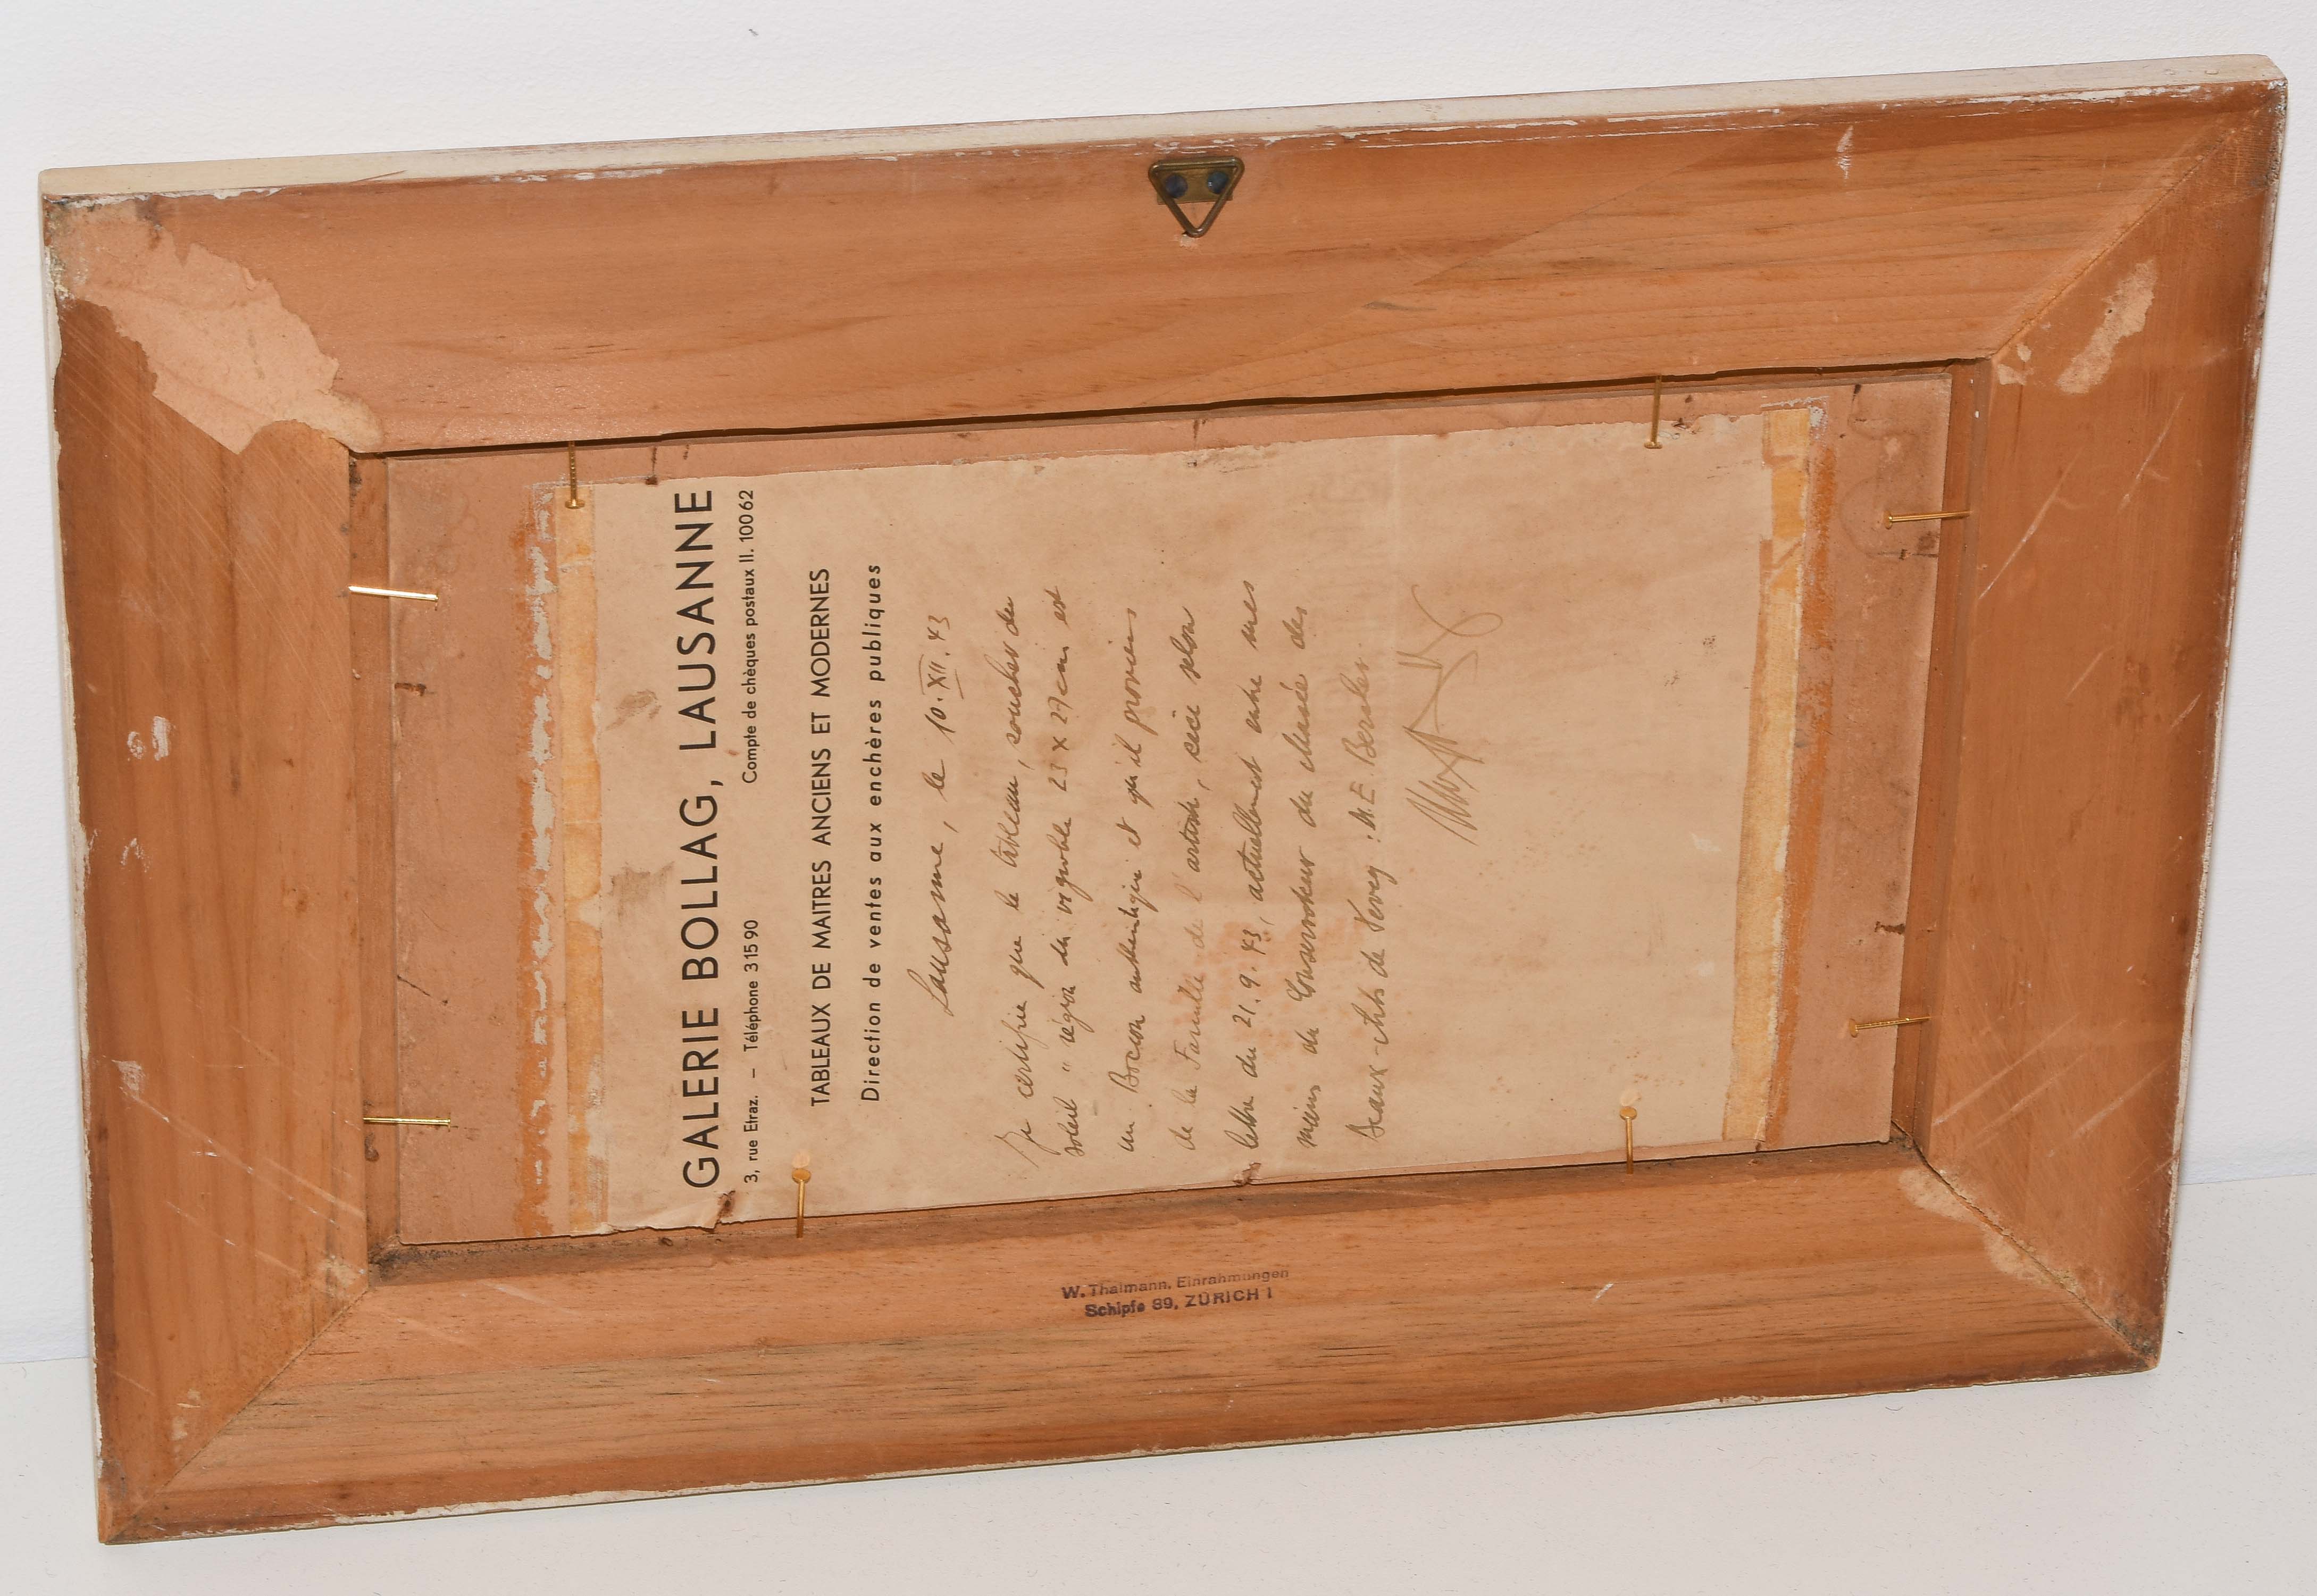 GALERIE BOLLAG, LAUSANNE
3, rue Etraz. – Téléphone 3 15 90 Compte de chèques postaux II. 100 62
TABLEAUX DE MAITRES ANCIENS ET MODERNES
Direction de ventes aux enchères publiques
Lausanne, le 10. XII. 43
Je certifie que le tableau, coucher du
soleil " région du vignoble 23 x 27 cm est
un Bocion authentique et qu'il proviens
de la Famille de l'artiste, ceci selon
lettre du 21. 9. 43, actuellement entre mes
mains du Conservateur du Musée des
Beaux-Arts de Vevey : M. E.
W. Thalmann, Einrahmungen
Schipfe 39, ZÜRICH 1